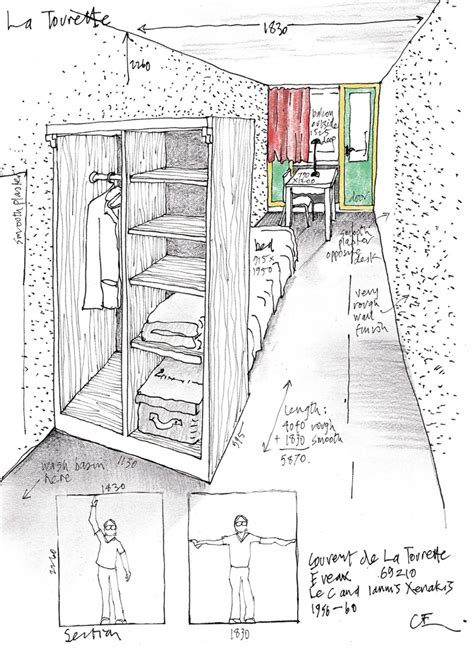 La Tourette
1830
2260
smooth plaster
balcony
outside
1525
deep
790
x1200
door
bed
915 x
1950
smooth
plaster
opposite
desk
very
rough
wall
finish
Length:
4040 rough
+ 1830 smooth
5870.
595
wash basin 1130
here
1830
2260
Section
1830
Couvent de La Tourette
Eveux 69210
Le C and Iannis Xenakis
1956-60